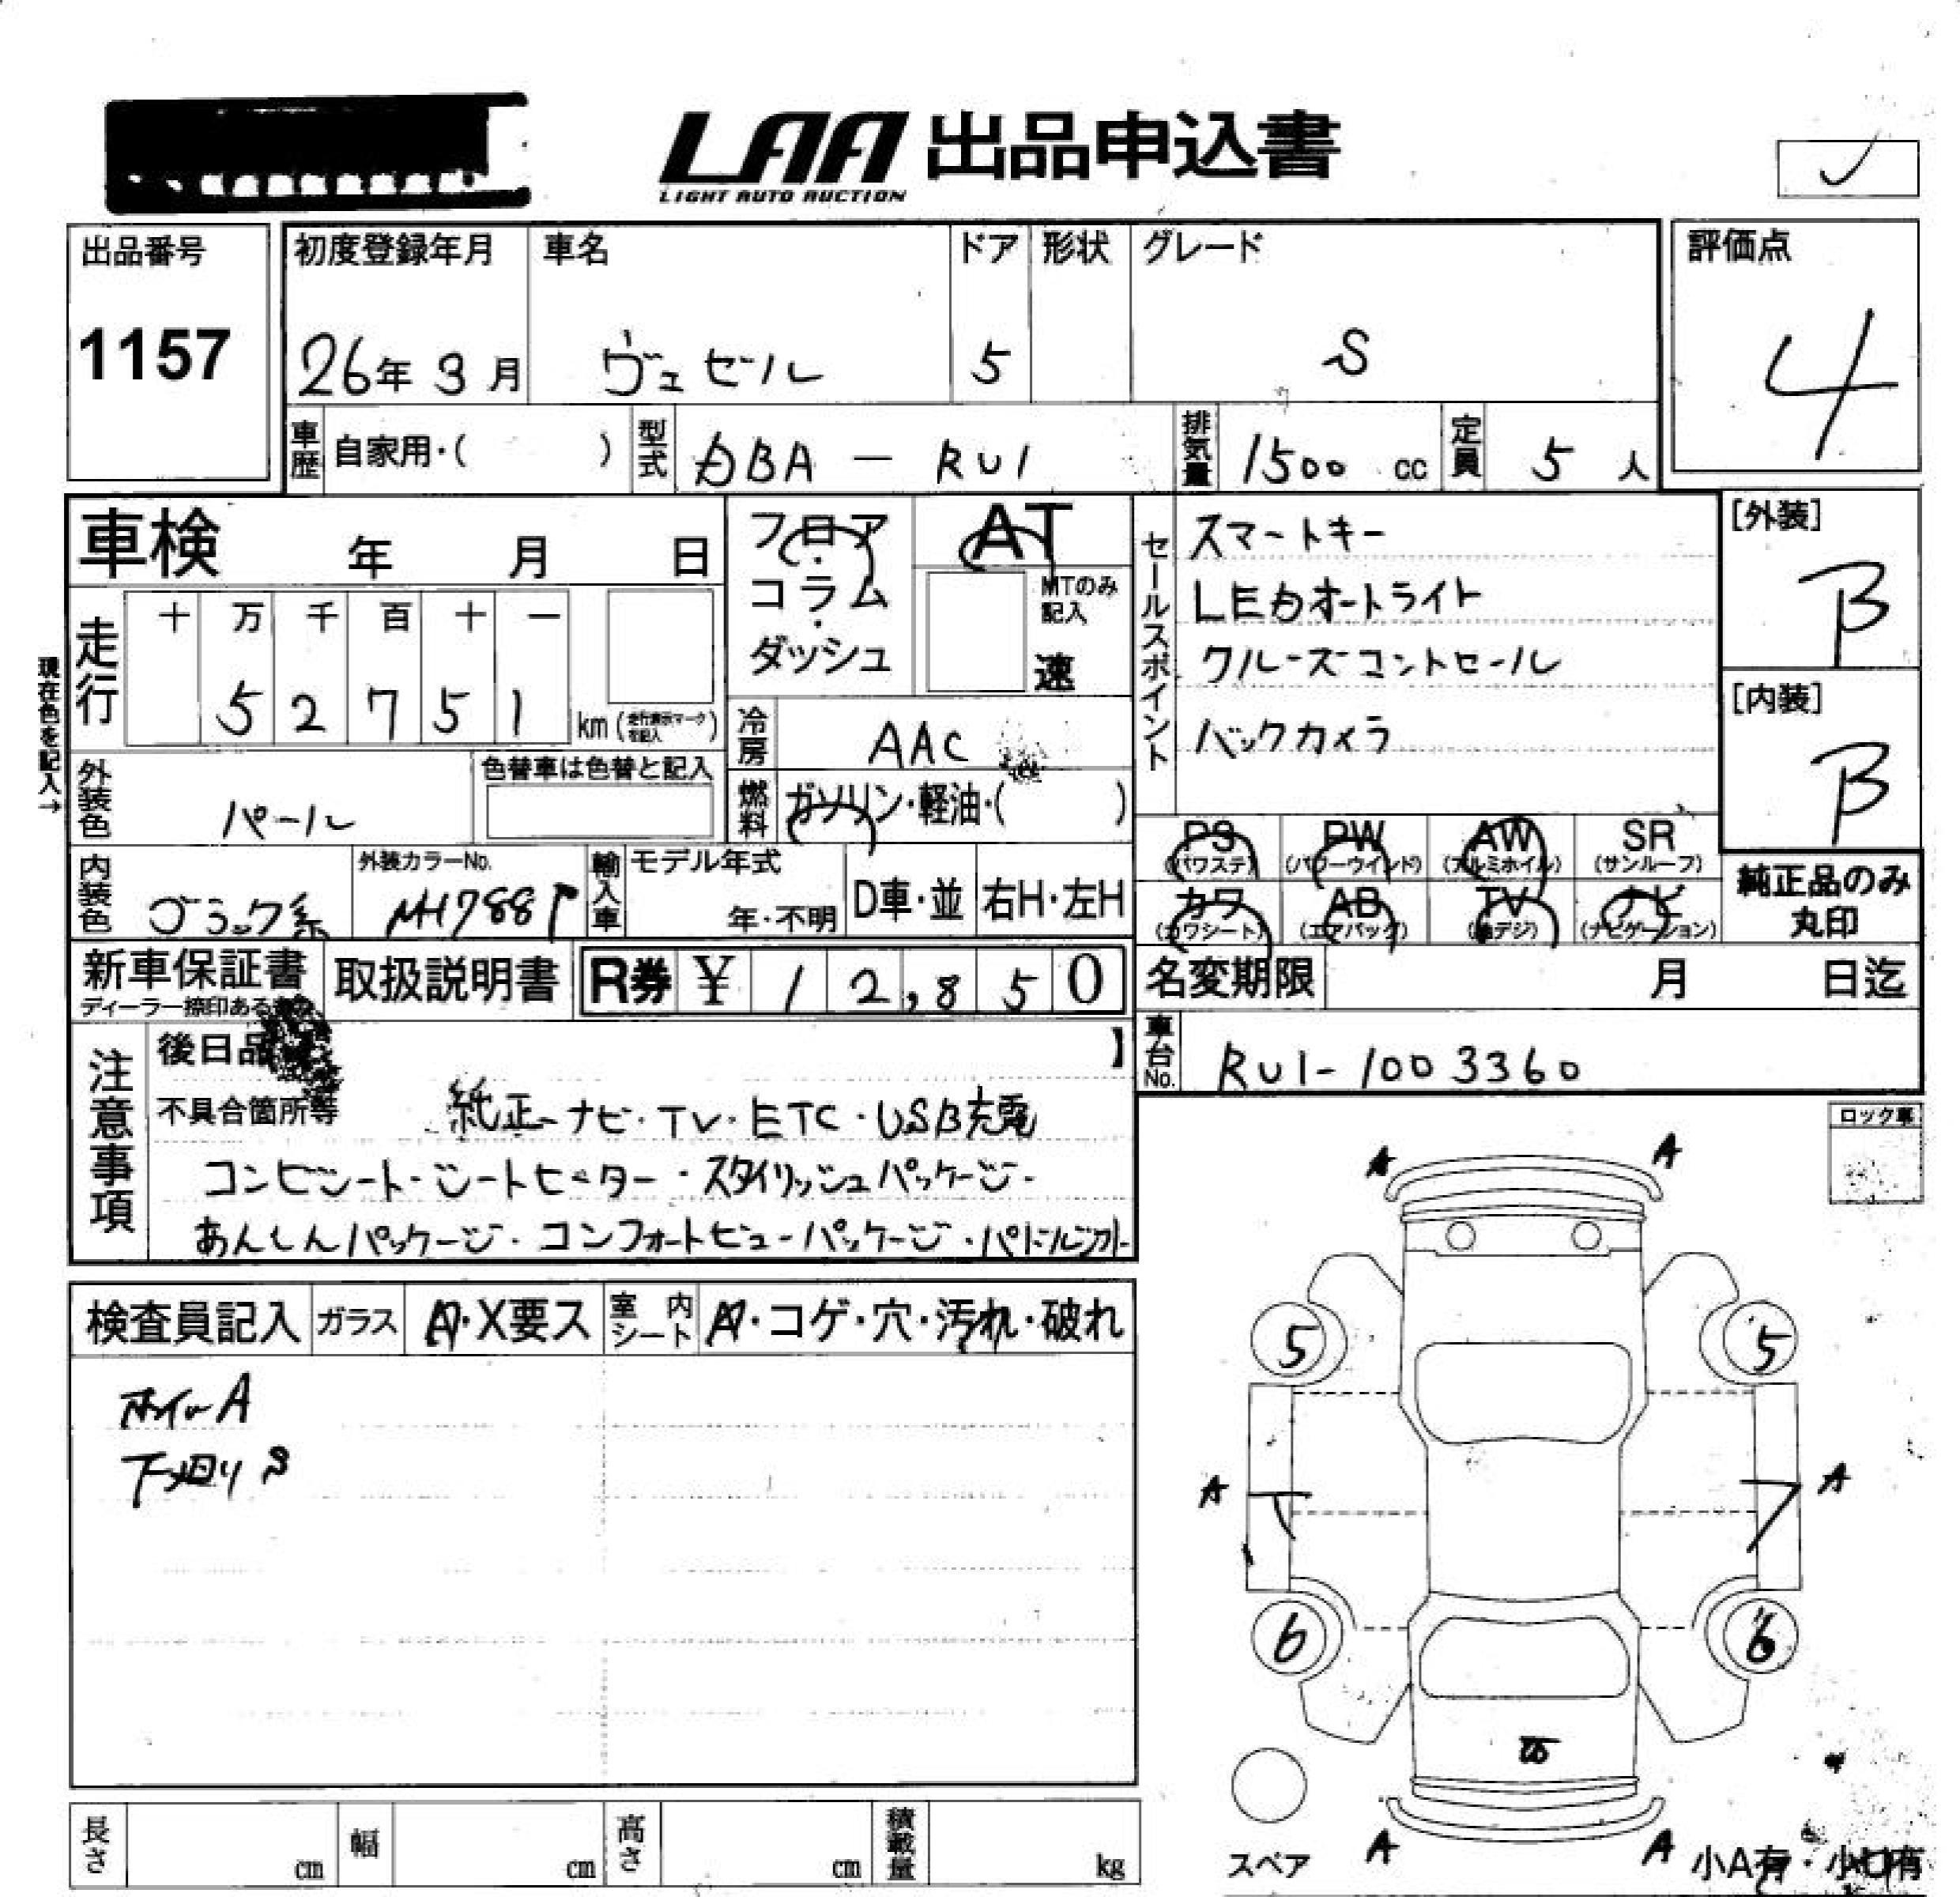 LAA 出品申込書
LIGHT AUTO AUCTION
出品番号
1157
初度登録年月 車名 ドア 形状 グレード
26年 3月 ヴェゼル 5 S
評価点
4
車歴 自家用・( ) 型式 DBA - RU1 排気量 1500 cc 定員 5 人
車検 年 月 日
フロア・コラム・ダッシュ
AT
MTのみ記入
速
セールスポイント
スマートキー
LEDオートライト
クルーズコントロール
バックカメラ
[外装]
B
[内装]
B
現在色を記入→
走行
十 万 千 百 十 一
5 2 7 5 1 km (走行表示マークを記入)
冷房 AAC
外装色 パール
色替車は色替と記入
燃料 ガソリン・軽油・( )
PS (パワステ) PW (パワーウインド) AW (アルミホイル) SR (サンルーフ)
カワ (カワシート) AB (エアバッグ) TV (地デジ) ナビ (ナビゲーション)
純正品のみ
丸印
内装色 ブラック系
外装カラーNo. NH788P
輸入車 モデル年式 年・不明 D車・並 右H・左H
新車保証書
ディーラー捺印ある
取扱説明書
R券 ¥ 1 2,8 5 0
名変期限 月 日迄
車台No. RU1-1003360
注意事項
後日品 】
不具合箇所等 純正ナビ・TV・ETC・USB充電
コンビシート・シートヒーター・スタイリッシュパッケージ・
あんしんパッケージ・コンフォートビューパッケージ・パドルシフト
ロック車
検査員記入 ガラス A・X要ス 室内シート A・コゲ・穴・汚れ・破れ
ホイールA
下廻りS
A A
5 5
A A
6 6
A A
スペア
小A有・小U有
長さ cm 幅 cm 高さ cm 積載量 kg